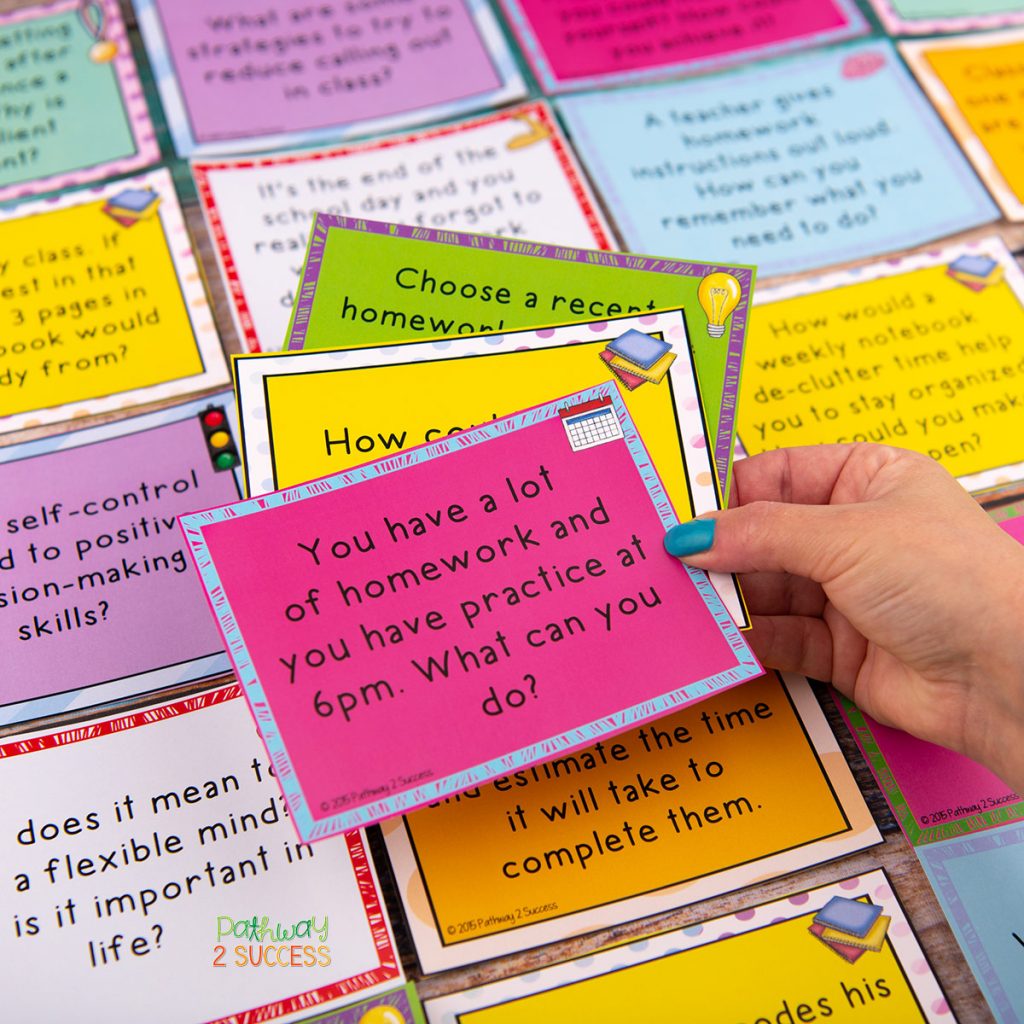 What are some
strategies to try to
reduce calling out
in class?
A teacher gives
homework
instructions out loud.
How can you
remember what you
need to do?
It's the end of the
school day and you
forgot to
y class. If
est in that
3 pages in
book would
dy from?
Choose a recent
How would a
weekly notebook
de-clutter time help
you to stay organized
could you mak
pen?
self-control
d to positiv
sion-making
skills?
How
You have a lot
of homework and
you have practice at
6pm. What can you
do?
© 2015 Pathway 2 Success
and estimate the time
it will take to
complete them.
© 2015 Pathway 2 Success
© 2015 Pathway 2 Success
does it mean to
a flexible mind?
is it important in
life?
Pathway
2 SUCCESS
odes his